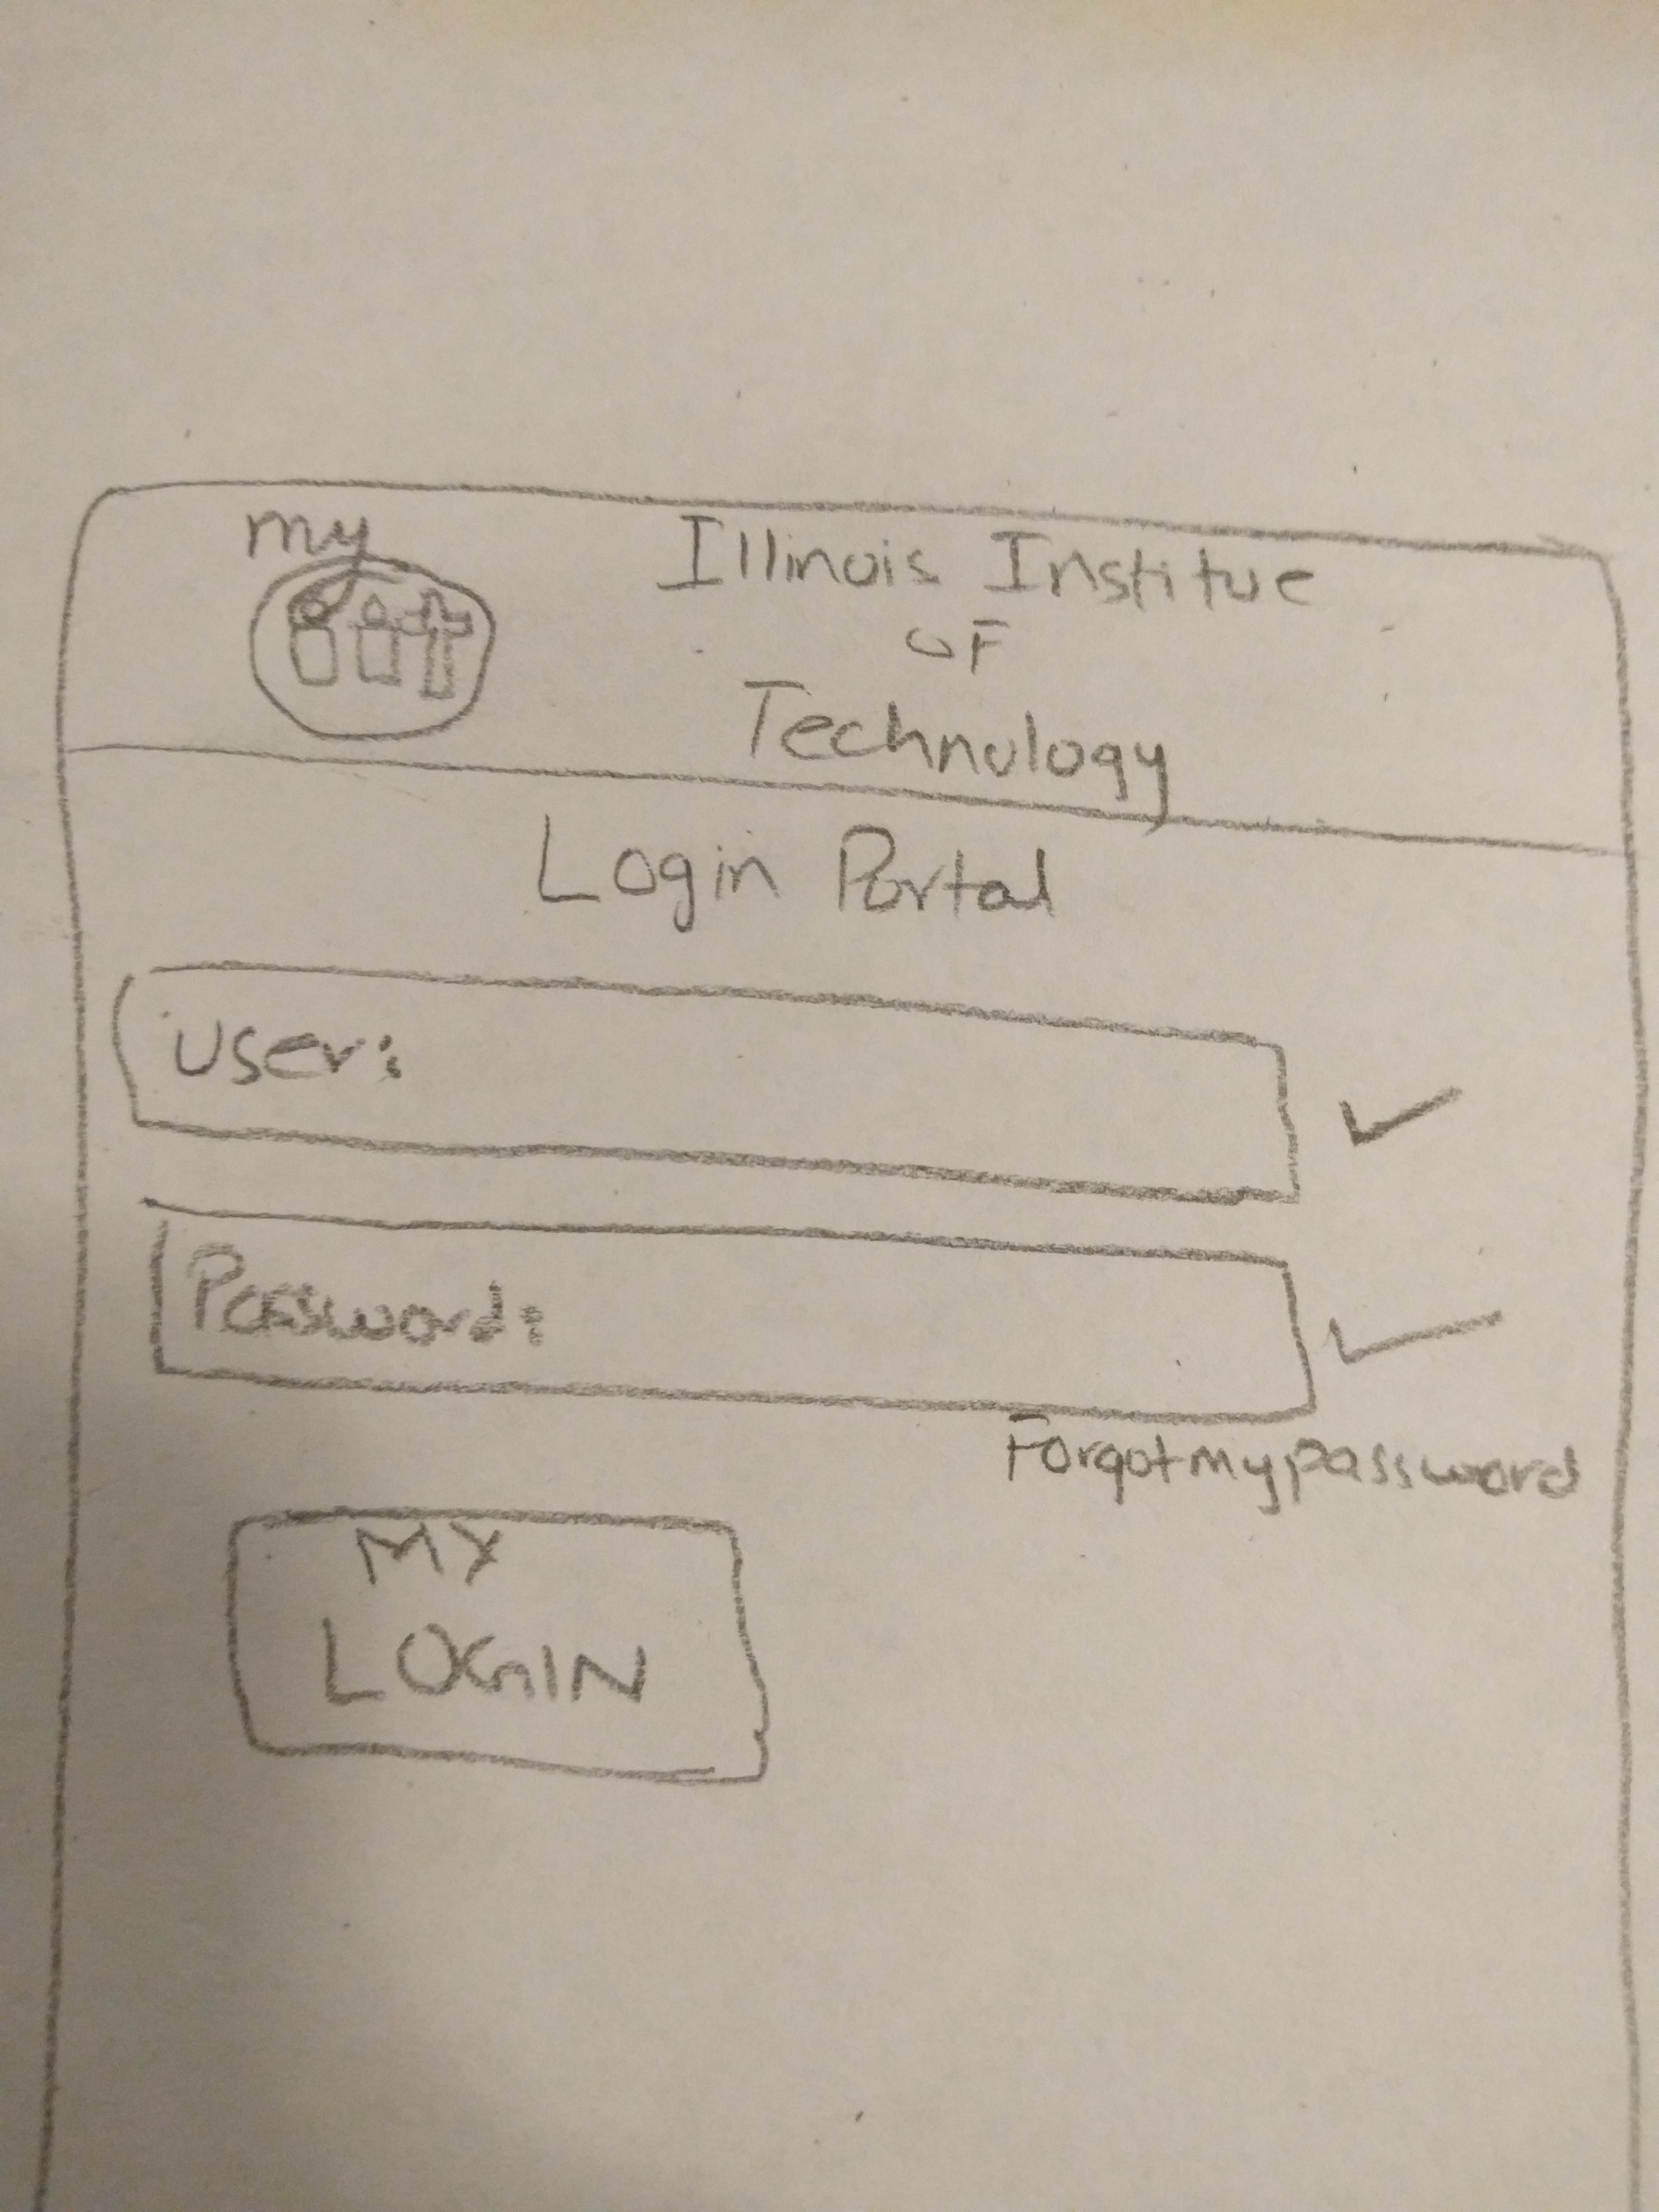 my
IIT
Illinois Institue
OF
Technology
Login Portal
User:
Password:
Forgot my password
MY
LOGIN